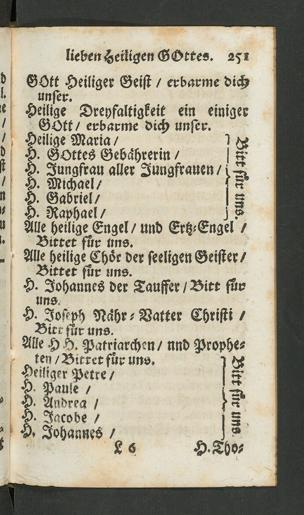 lieben Heiligen GOttes. 251
GOtt Heiliger Geist / erbarme dich
unser.
Heilige Dreyfaltigkeit ein einiger
GOtt / erbarme dich unser.
Heilige Maria /
H. GOttes Gebährerin /
H. Jungfrau aller Jungfrauen /
H. Michael /
H. Gabriel /
H. Raphael /
Bitt für uns.
Alle heilige Engel / und Ertz-Engel /
Bittet für uns.
Alle heilige Chör der seeligen Geister /
Bittet für uns.
H. Johannes der Tauffer / Bitt für
uns.
H. Joseph Nähr-Vatter Christi /
Bitt für uns.
Alle H H. Patriarchen / und Prophe-
ten / Bittet für uns.
Heiliger Petre /
H. Paule /
H. Andrea /
H. Jacobe /
H. Johannes /
Bitt für uns.
L 6 H. Tho-